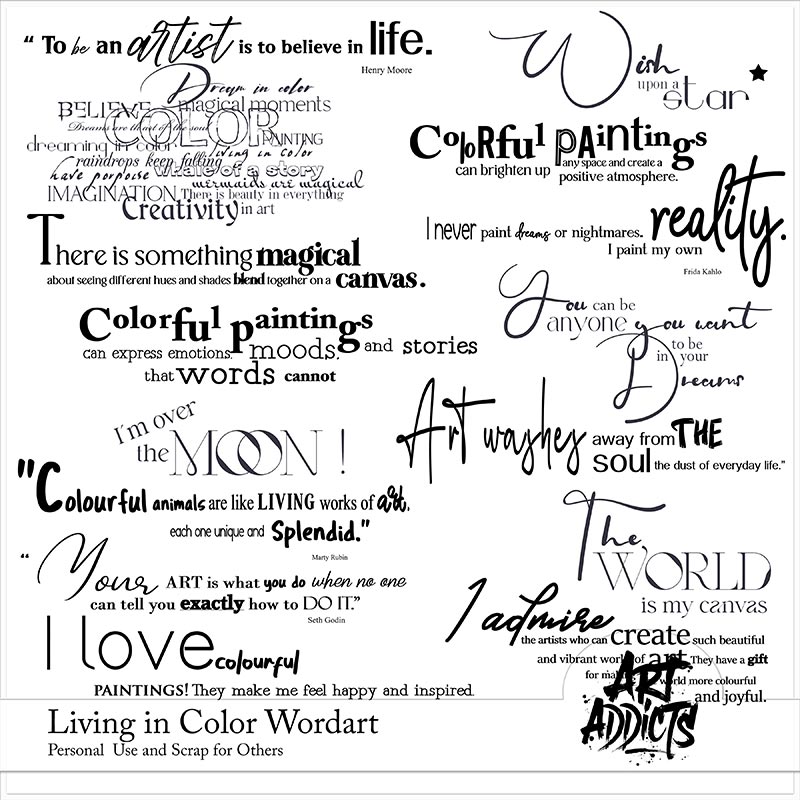 “ To be an artist is to believe in life.
Henry Moore
Dream in color
BELIEVE magical moments
Dreams are the art of the soul
COLOR
PAINTING
dreaming in color living in color
raindrops keep falling
have porpoise whale of a story
mermaids are magical
IMAGINATION There is beauty in everything
Creativity in art
There is something magical
about seeing different hues and shades blend together on a canvas.
Colorful paintings
can express emotions, moods, and stories
that words cannot
I'm over
the MOON !
"Colourful animals are like LIVING works of art,
each one unique and Splendid."
Marty Rubin
“ Your ART is what you do when no one
can tell you exactly how to DO IT.”
Seth Godin
I love colourful
PAINTINGS! They make me feel happy and inspired.
Wish
upon a
star
Colorful paintings
can brighten up any space and create a
positive atmosphere.
I never paint dreams or nightmares. reality.
I paint my own
Frida Kahlo
You can be
anyone you want
to be
in your
Dreams
Art washes away from THE
soul the dust of everyday life.”
The
WORLD
is my canvas
I admire
the artists who can create such beautiful
and vibrant works of art. They have a gift
for world more colourful
and joyful.
ART
ADDICTS
Living in Color Wordart
Personal Use and Scrap for Others